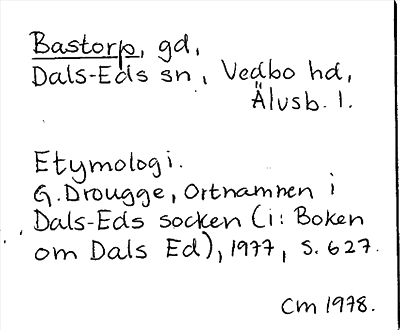 Bastorp, gd,
Dals-Eds sn, Vedbo hd,
Älvsb. l.
Etymologi.
G. Drougge, Ortnamnen i
Dals-Eds socken (i: Boken
om Dals Ed), 1977, s. 627.
Cm 1978.